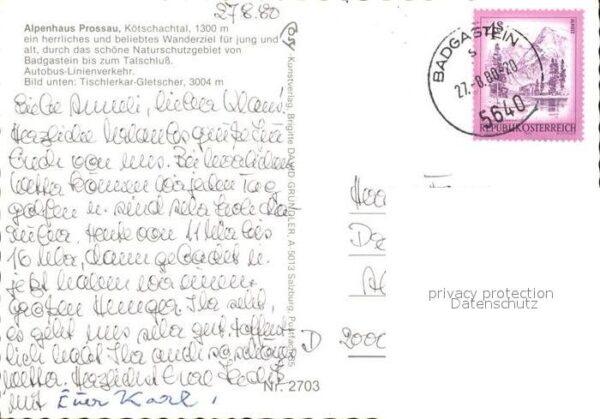 27.8.80
Alpenhaus Prossau, Kötschachtal, 1300 m
ein herrliches und beliebtes Wanderziel für jung und
alt, durch das schöne Naturschutzgebiet von
Badgastein bis zum Talschluß.
Autobus-Linienverkehr.
Bild unten: Tischlerkar-Gletscher, 3004 m
Liebe Anneli, lieber
Herzliche Urlaubsgrüße für
Euch von uns. Bei herrlichem
Wetter können wir jeden Tag
golfen u. sind sehr froh
Heute von 11 Uhr bis
16 Uhr, dann gebadet u.
jetzt haben wir einen
großen Hunger. Ihr seht,
es geht uns sehr gut hoffent
lich habt Ihr auch so schönes
Wetter. Herzlichst Eure
mit Euer Karl.
Kunstverlag, Brigitte DAVID GRÜNDLER, A 5013 Salzburg, Postfach
Nr. 2703
BADGASTEIN
27.-8.80-20
5640
4S
REPUBLIK ÖSTERREICH
D 2000
privacy protection
Datenschutz